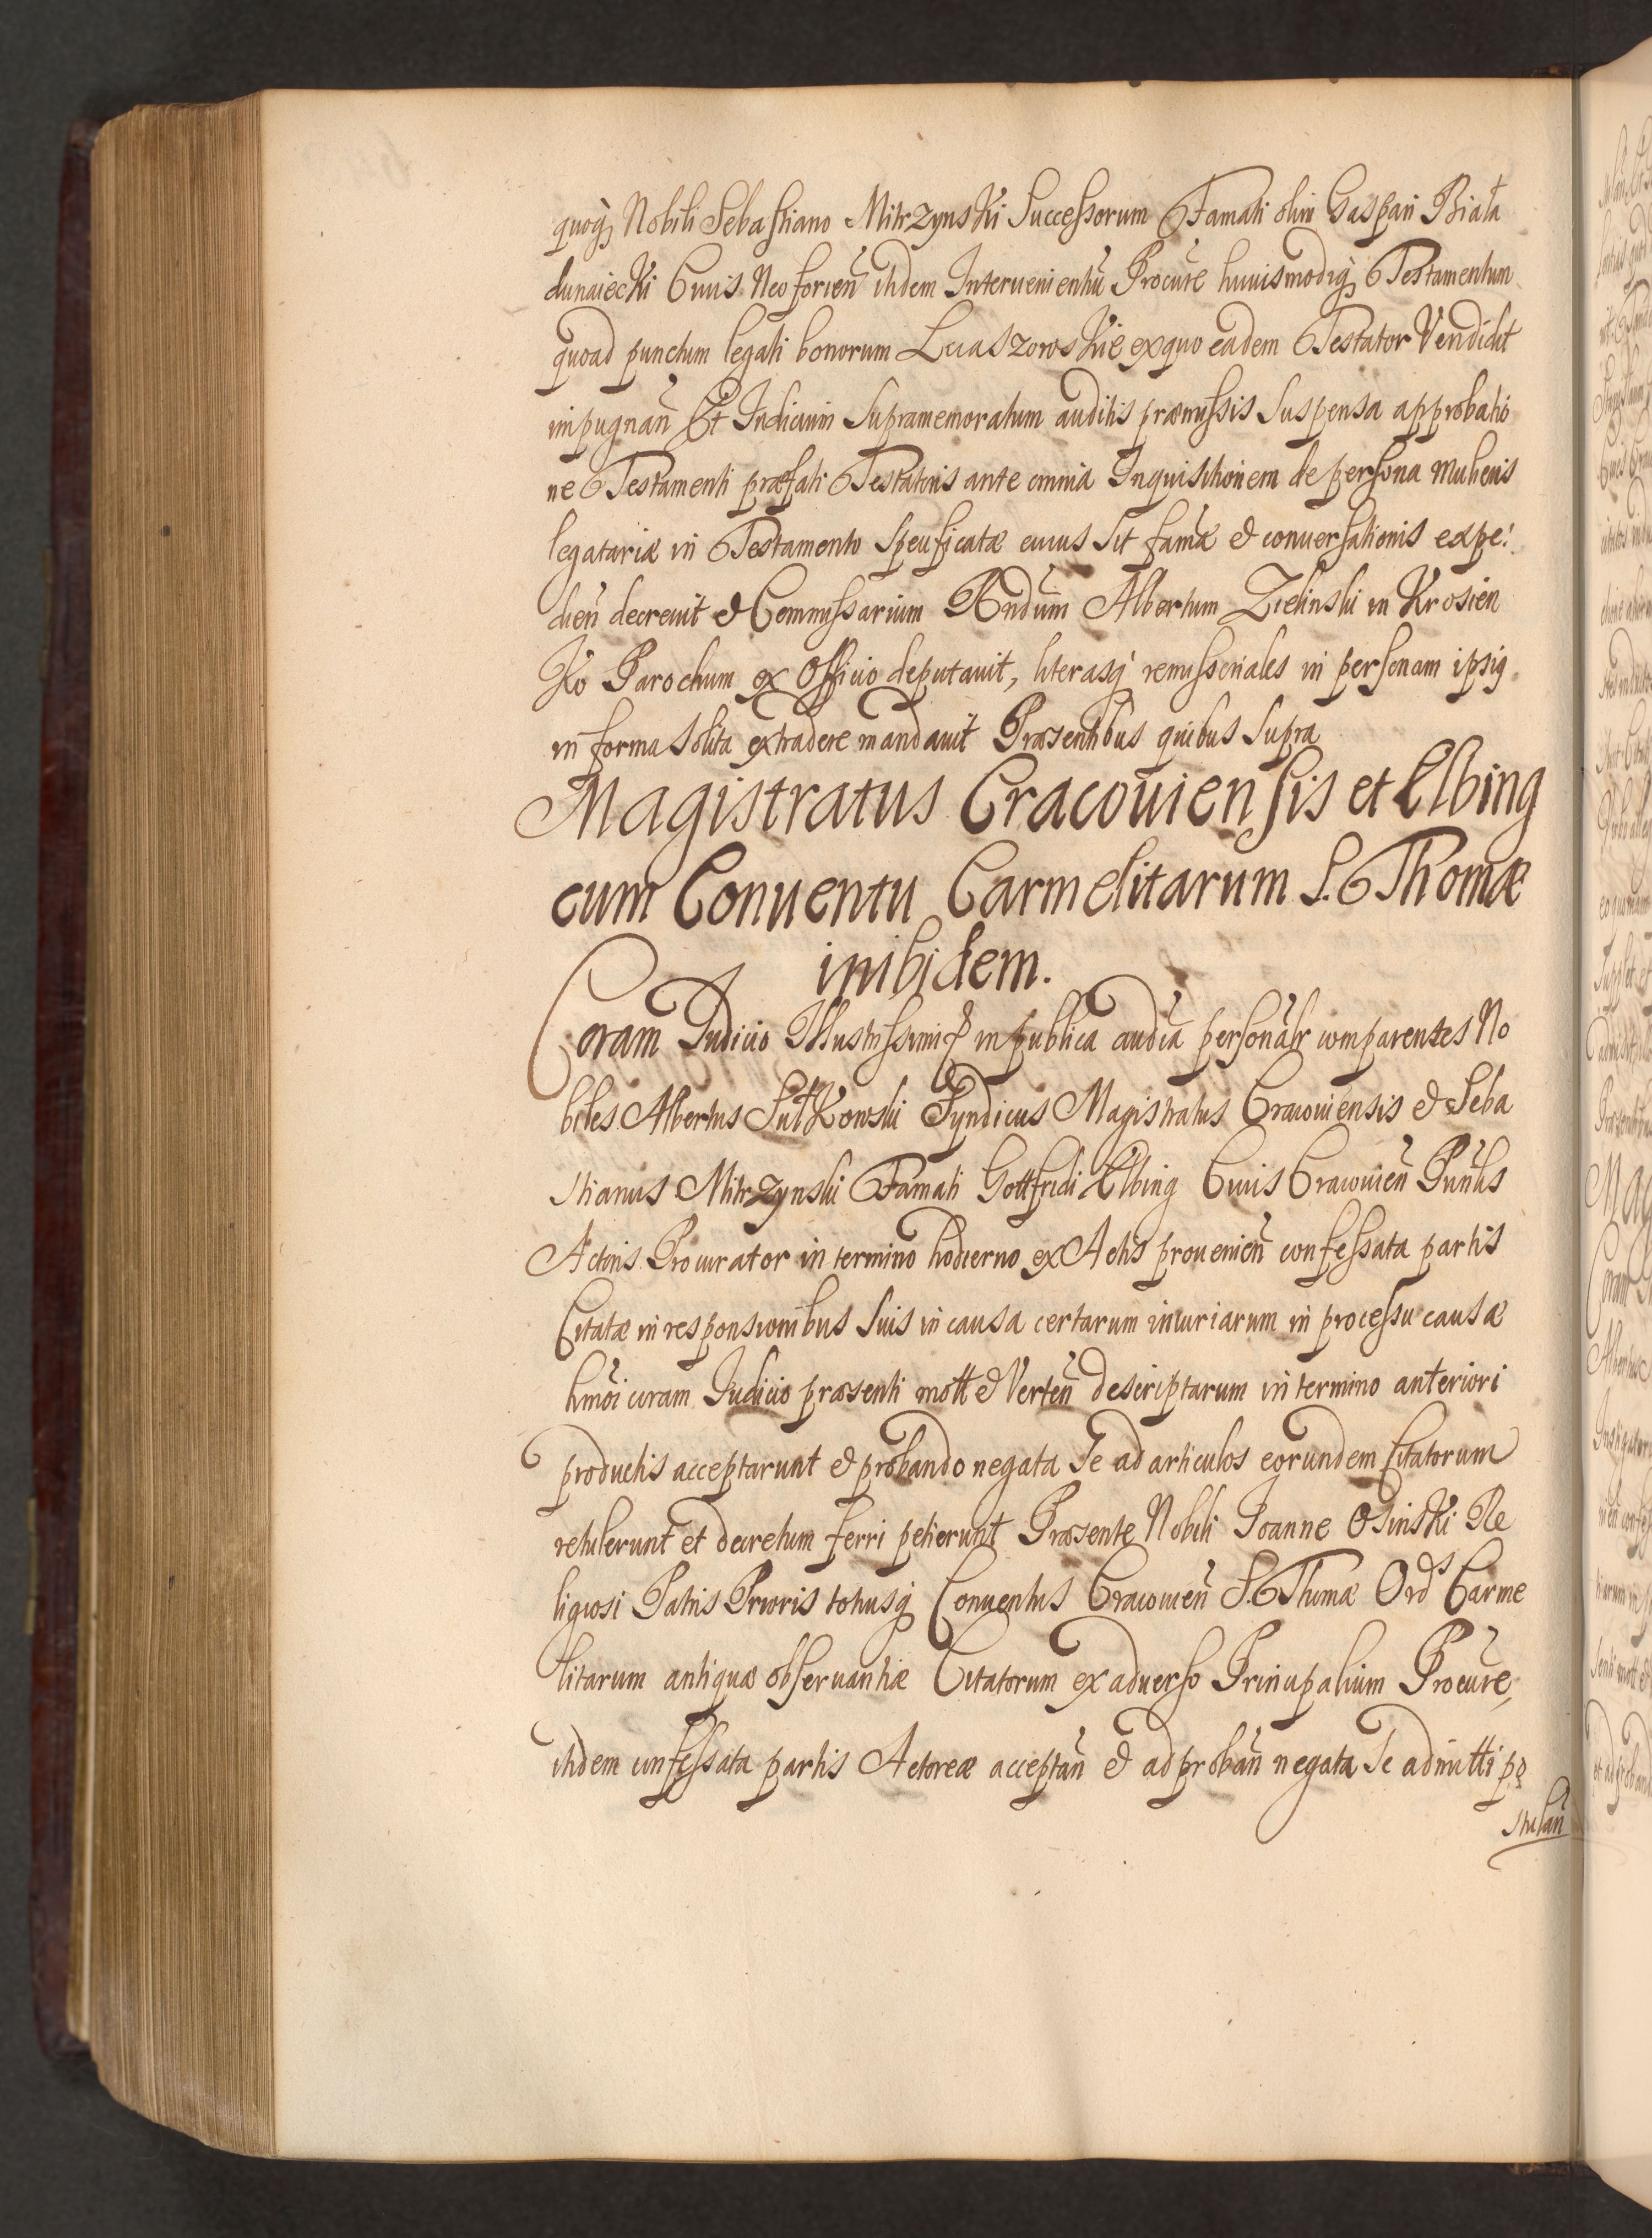 quoq, Nobili Sebastiano Mitrzynski Successorum Famati olim Gaspari Biała
dunaiecki Civis Neoforien̄ itidem Intervenientiū Procūre huiusmodiq, Testamentum
quoad punctum legati bonorum exquo eadem Testator Vendidit
impugnan̄ Et Iudicium Supramemoratum auditis præmissis Suspensa approbatio
ne Testamenti præfati Testatoris ante omnia Inquisitionem de persona mulieris
legatariæ in Testamento Specificatæ cuius Sit famæ et conversationis expe:
dien̄ decrevit et Commissarium Rndum Albertum Zielinski in Krosien
ko Parochum ex Officio deputavit, literasq remissoriales in personam ipsiq
in forma Solita extradere mandavit Præsentibus quibus Supra
Magistratus Cracoviensis et Elbing
cum Conventu Carmelitarum S. Thomæ
inibidem.
Coram Iudicio Illustrissimi in publica audia personalr comparentes No
biles Albertus Sułkowski Syndicus Magistratus Cracoviensis et Seba
stianus Mitrzynski Famati Gottfridi Elbing Civis Cracovien̄ Pūntis
Actoris Procurator in termino hodierno ex Actis provenien̄ confessata partis
Citatæ in responsionibus Suis in causa certarum iniuriarum in processu causæ
hmōi coram Iudicio præsenti mott et Verten̄ descriptarum in termino anteriori
productis acceptarunt et probando negata Se ad articulos eorundem Citatorum
retulerunt et decretum ferri petierunt Præsente Nobili Ioanne Osinski Re
ligiosi Patris Prioris totusq Conventus Cracovien̄ S. Thomæ Ords Carme
litarum antiquæ observantiæ Citatorum ex adverso Principalium Procūre,
itidem confessata partis Actoreæ acceptan̄ et ad proban̄ negata Se admitti po
stulan̄